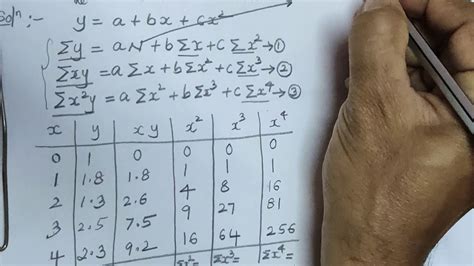 Soln :- y = a + bx + cx²
Σy = aN + bΣx + cΣx² → ①
Σxy = aΣx + bΣx² + cΣx³ → ②
Σx²y = aΣx² + bΣx³ + cΣx⁴ → ③
x y xy x² x³ x⁴
0 1 0 0 0 0
1 1.8 1.8 1 1 1
2 1.3 2.6 4 8 16
3 2.5 7.5 9 27 81
4 2.3 9.2 16 64 256
Σx²= Σx³= Σx⁴=